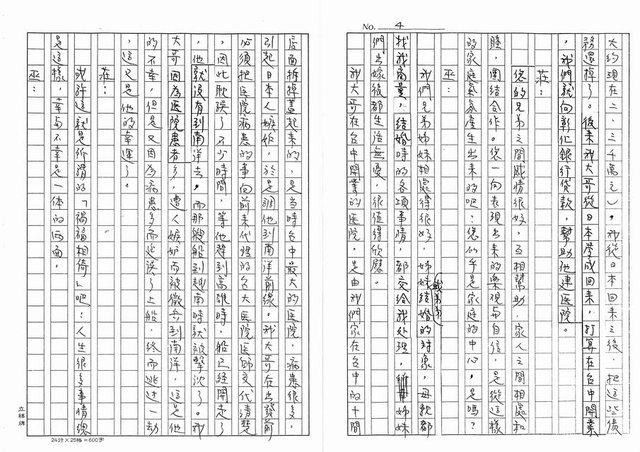 No. 4
大約現在二、三千萬元）。我從日本回來之後，把這些債
務還掉了。後來我大哥從日本學成回來，打算在台中開業
，我們就向彰化銀行貸款，幫助他建医院。
莊：
您的兄弟之間感情很好，互相幫助，家人之間相處和
睦，團結合作。您一向表現出來的樂觀與自信，是從這樣
的家庭氣氛產生出來的吧？您似乎是家庭的中心，是嗎？
巫：
我們兄弟姊妹相處得很好，姊妹結婚的對象，母親都
找我商量，結婚時的各項事情，都交給我處理，姊妹
們出嫁後都生活無憂，很值得欣慰。
我大哥在台中開業的医院，是由我們家在台中的十間
店面拆掉蓋起來的，是當時台中最大的医院，病患很多，
引起日本人嫉妒，於是調他到南洋前線。我大哥在出發前
必須把医院病患的事向前來代理的台大医院医師交代清楚
，因此耽誤了不少時間，等他趕到高雄時，船已經開走了
，他就沒有到南洋去，而那艘船到越南時就被擊沈了。我
大哥因為医院患者多，遭人嫉妒而被徵召到南洋，這是他
的不幸，但是又因為病患多而延誤了上船，終而逃过一劫
，這又是他的幸運了。
莊：
或許這就是所謂的「禍福相倚」吧！人生很多事情總
是這樣，幸與不幸是一体的兩面。
巫：
立穎牌
24行×25格=600字